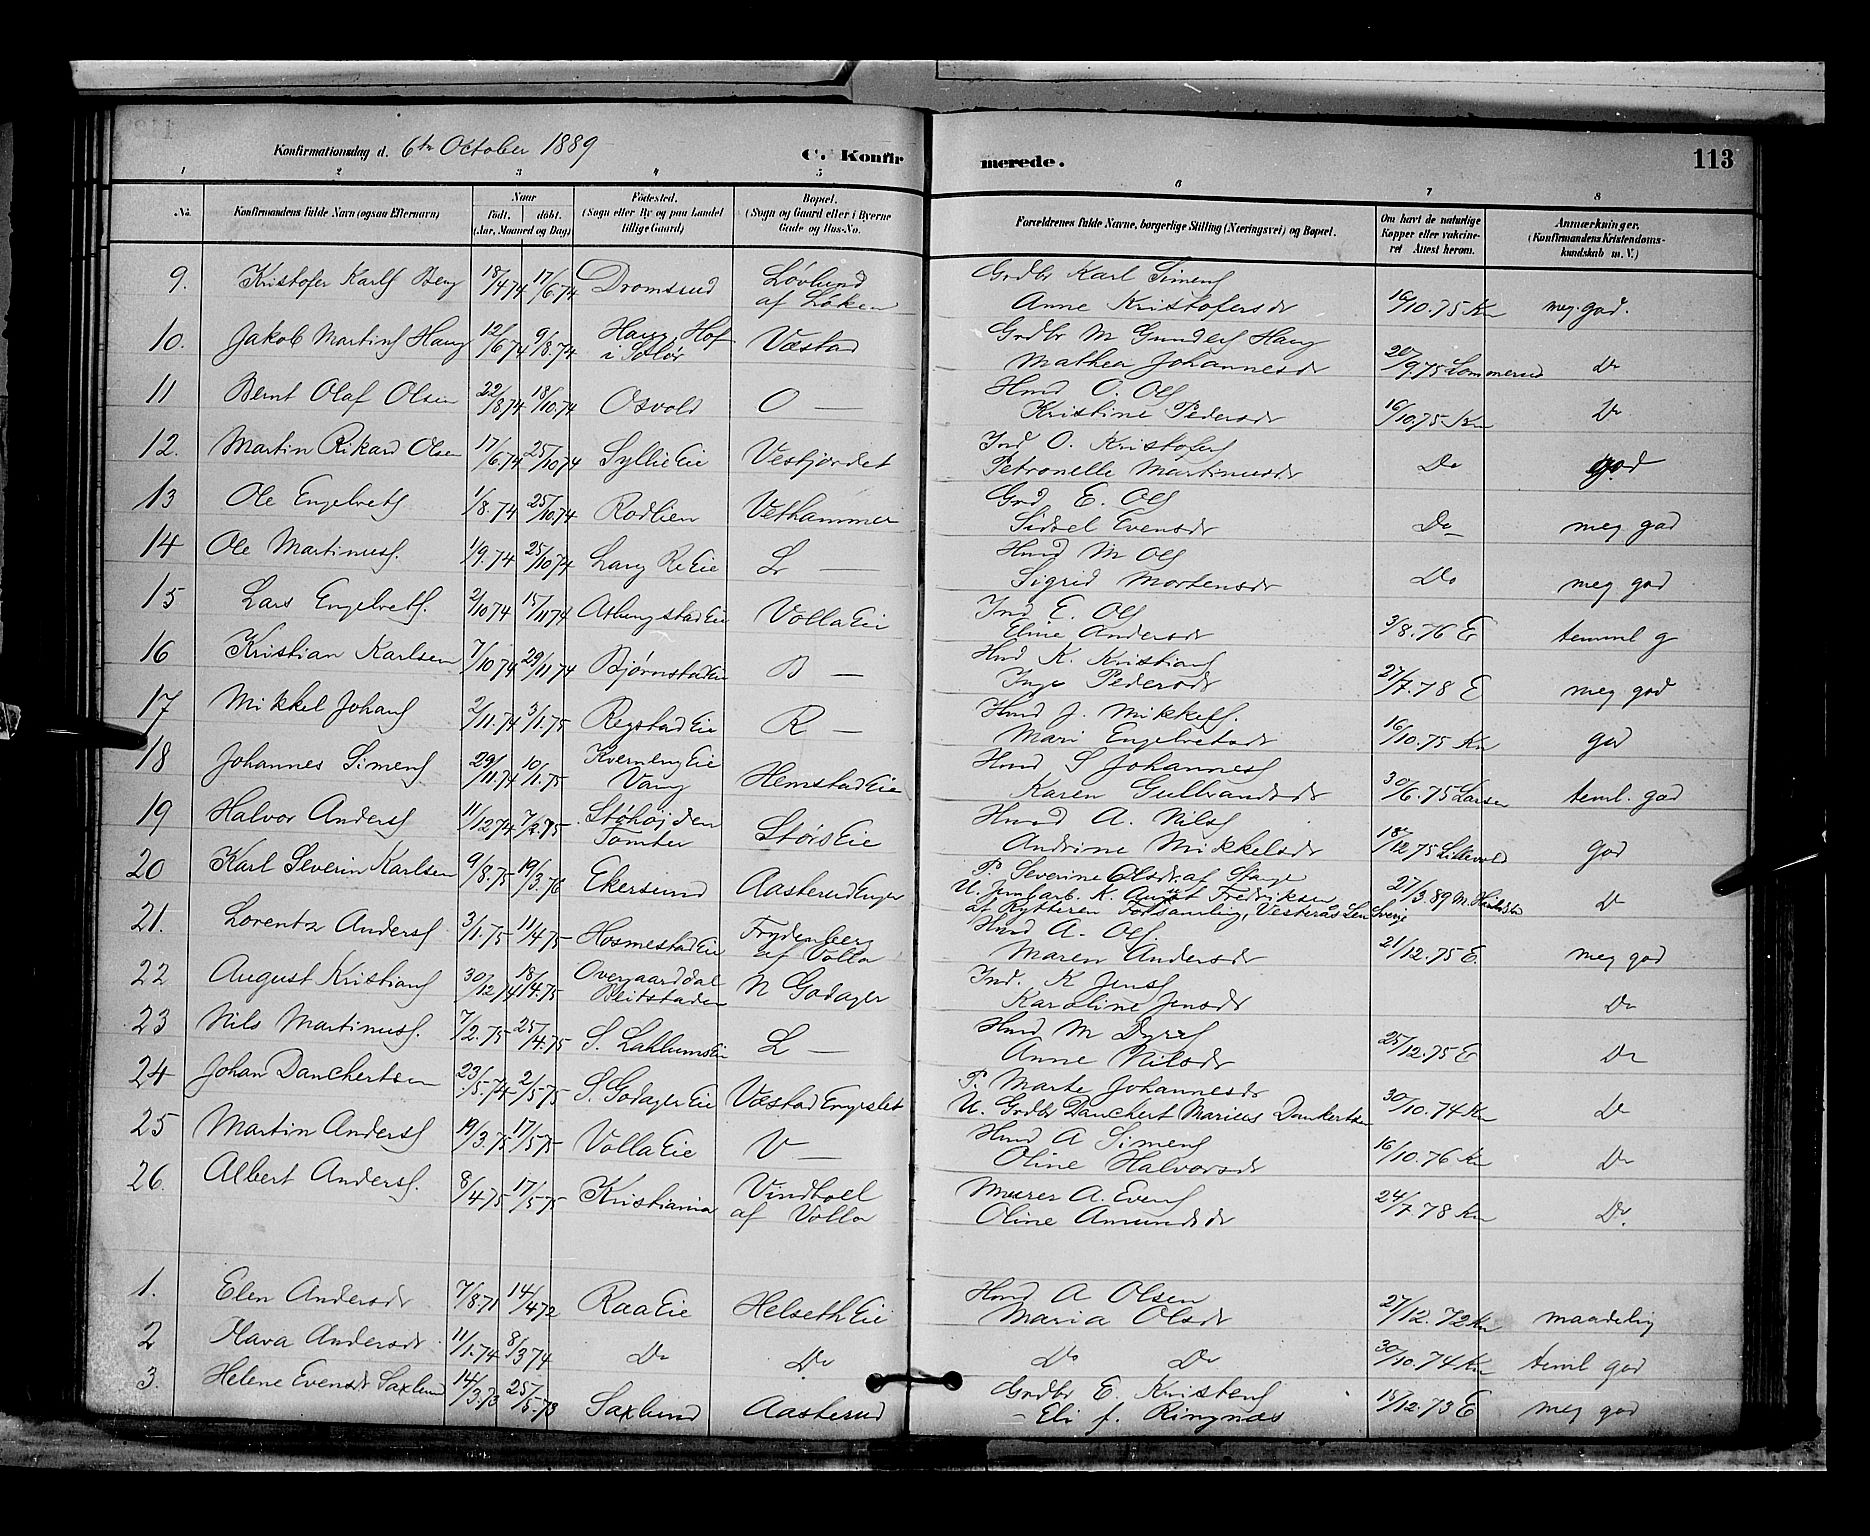 Konfirmationsdag d. 6te October 1889 C. Konfirmerede. 113
1 2 3 4 5 6 7 8
No. Konfirmandens fulde Navn (ogsaa Efternavn) Naar født. døbt. (Aar, Maaned og Dag) Fødested. (Sogn eller By og paa Landet tillige Gaard) Bopæl. (Sogn og Gaard eller i Byerne Gade og Hus-No. Forældrenes fulde Navne, borgerlige Stilling (Næringsvei) og Bopæl. Om havt de naturlige Kopper eller vakcineret Attest herom. Anmærkninger. (Konfirmandens Kristendomskundskab m. V.)
9. Kristofer Karls Berg 18/4 74 17/6 74 Dromsrud Løvlund af Løken Grdbr Karl Simens Anne Kristofersdr 16/10.75 Kn meg. god.
10. Jakob Martins Haug 12/6 74 9/8.74 Haug, Hof i Solør Væstad Grdbr M Gunders Haug Mathea Johannesdr 20/9.75 Lommerud Do
11 Bernt Olaf Olsen 22/8 74 18/10.74 Osvold O — Hmd O. Ols Kristine Pedersdr 16/10.75 Kn Do
12. Martin Rikard Olsen 17/6.74 25/10.74 Syllie Eie Vestjordet Ind O. Kristofers Petronelle Martinusdr Do god
13 Ole Engebrets 1/8.74 25/10.74 Rodlien Vethammer Grd E. Ols Sidsel Evensdr Do meg god
14 Ole Martinus. 1/9.74 25/10.74 Lang Re Eie L — Hmd M Ols Sigrid Mortensdr Do meg god
15 Lars Engebrets. 2/10 74 15/11 74 Volla Eie Ind E. Ols Eline Andersdr 3/8.76 E temml g
16 Kristian Karlsen 7/10 74 29/11 74 Bjørnstad Eie B — Hmd K. Kristians Inge Pedersdr 27/7.78 E meg god
17 Mikkel Johans 2/11.74 3/1.75 Regstad Eie R — Hmd J. Mikkels. Mari Engebretsdr 16/10.75 Kn god
18 Johannes Simens 29/11.74 10/1.75 Kverneng Eie Vang Hemstad Eie Hmd S Johannes Karen Gulbrandsdr 30/6.75 Larsen teml. god
19 Halvor Anders 11/12 74 7/2.75 Støhøjden Tomter Støis Eie Hmd A. Nils Andrine Mikkelsdr 18/12.75 Lillevold god
20 Karl Severin Karlsen 9/8.75 19/3.76 Ekersund Aasterud Enger P. Severine Olsdr af Stange U. Jernbarb. K. August Fredriksen af Rytteren Forsamling, Vesteraas Len Sverige 27/3.89 M. Do
21. Lorentz Anders 3/1.75 11/4.75 Hosmestad Eie Frydenberg af Volla Hmd A. Ols Maren Andersdr 21/12.75 E. meg god
22 August Kristians 30/12.74 18/4.75 Overgaarddal Reitstaden N Godager Ind. K Jens Karoline Jensdr Do
23 Nils Martinus. 7/2.75 25/4.75 S. Lahlums Eie L — Hmd M Dyres Anne Nilsdr 25/12.75 E Do
24 Johan Danchertsen 23/5.74 2/5.75 S. Godager Eie Væstad Engeslet P. Marte Johannesdr U. Grdbr Danchert Marius Dankertsen 30/10.74 Kn Do
25 Martin Anders 19/3.75 17/5.75 Volla Eie V — Hmd A Simens Oline Halvorsdr 16/10.76 Kn Do
26. Albert Anders. 8/4.75 17/5.75 Kristiania Vindholl af Volla Murer A. Evens Oline Amundsdr 24/7.78 Kn Do.
1. Elen Andersdr 7/8.71 14/4 72 Raa Eie Helseth Eie Hmd A Olsen Maria Olsdr 27/12.72 Kn maadelig
2 Mava Andersdr 11/1.74 8/3 74 Do Do Do Do 30/10.74 Kn teml god
3. Helene Evensdr Saxlund 14/3.73 25/5.73 Saxlund Aasterud Grdbr E. Kristens - Eli f. Ringnæs 15/12.73 E meg god